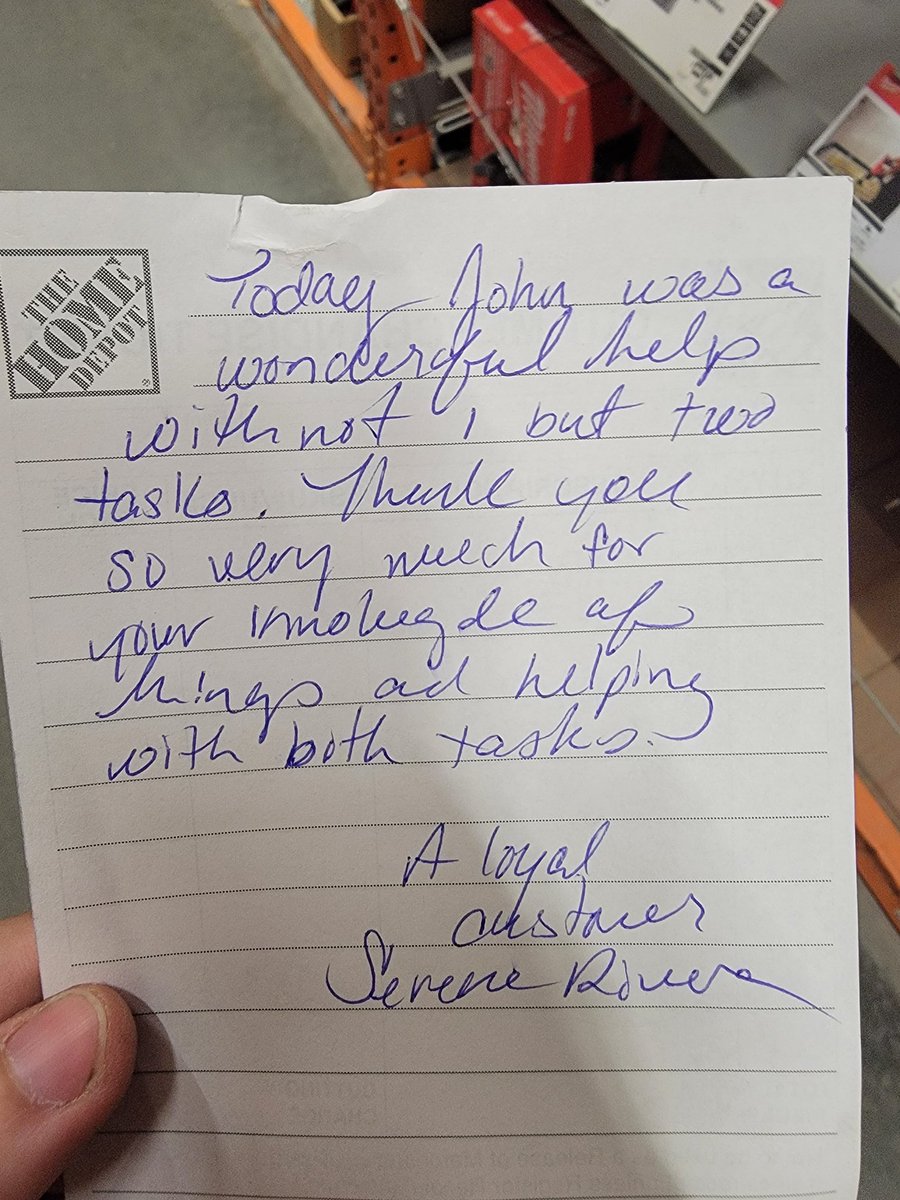 THE
HOME
DEPOT
®
Today John was a
wonderful help
with not 1 but two
tasks. Thank you
so very much for
your knowlegde of
things ad helping
with both tasks.
A loyal
customer
Serene Rivera